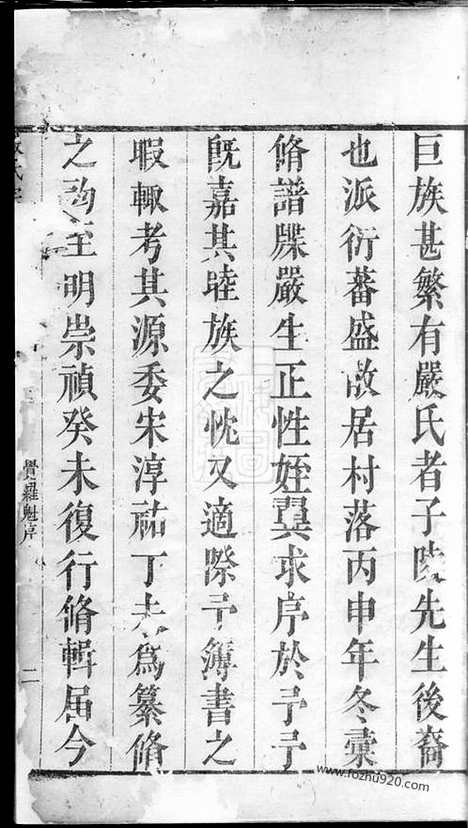 巨族甚繁有嚴氏者子陵先生後裔
也派衍蕃盛散居村落丙申年冬彙
脩譜牒嚴生正性姪翼求序於予予
旣嘉其睦族之忱又適際予簿書之
暇輙考其源委宋淳祐丁未爲纂脩
之 至明崇禎癸未復行脩輯屈今
覺羅魁序
二
www.fozhu920.com